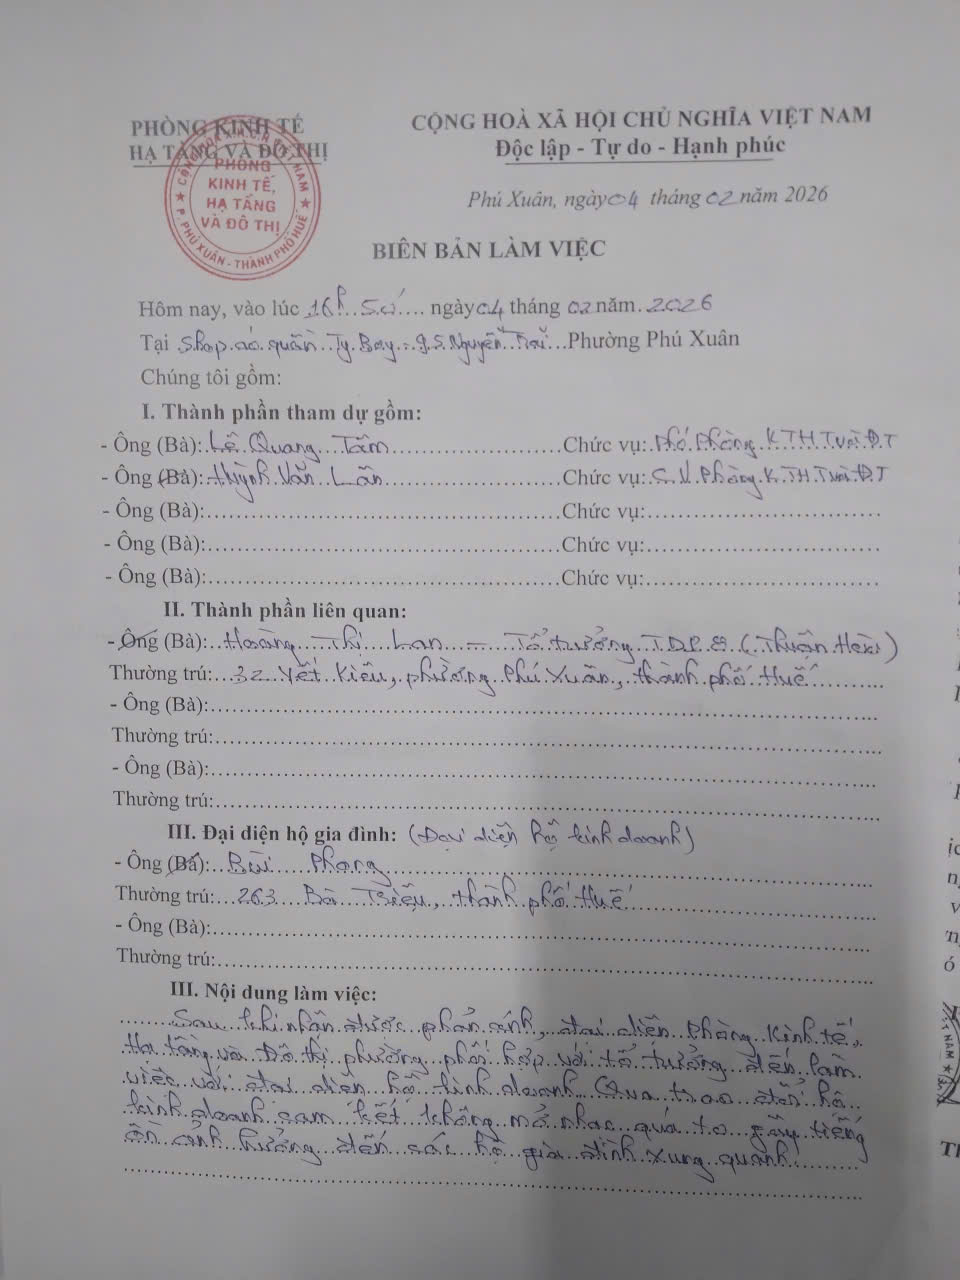 PHÒNG KINH TẾ
HẠ TẦNG VÀ ĐÔ THỊ
CỘNG HOÀ XÃ HỘI CHỦ NGHĨA VIỆT NAM
Độc lập - Tự do - Hạnh phúc
PHÒNG
KINH TẾ,
HẠ TẦNG
VÀ ĐÔ THỊ
P. PHÚ XUÂN - THÀNH PHỐ HUẾ
Phú Xuân, ngày 04 tháng 02 năm 2026
BIÊN BẢN LÀM VIỆC
Hôm nay, vào lúc 16h 50' ngày 04 tháng 02 năm 2026
Tại Shop áo quần Ty Boy - Nguyễn Trãi Phường Phú Xuân
Chúng tôi gồm:
I. Thành phần tham dự gồm:
- Ông (Bà): Lê Quang Tâm Chức vụ: Phó Phòng KTHT và ĐT
- Ông (Bà): Huỳnh Văn Lân Chức vụ: C.V Phòng KTHT và ĐT
- Ông (Bà): Chức vụ:
- Ông (Bà): Chức vụ:
- Ông (Bà): Chức vụ:
II. Thành phần liên quan:
- Ông (Bà): Hoàng Thị Lan - Tổ trưởng TDP 8 (Thuận Hoà)
Thường trú: 32 Yết Kiêu, phường Phú Xuân, thành phố Huế
- Ông (Bà):
Thường trú:
- Ông (Bà):
Thường trú:
III. Đại diện hộ gia đình: (Đại diện hộ kinh doanh)
- Ông (Bà): Bùi Phong
Thường trú: 263 Bà Triệu, thành phố Huế
- Ông (Bà):
Thường trú:
III. Nội dung làm việc:
Sau khi nhận được phản ánh, đại diện Phòng Kinh tế,
Hạ tầng và Đô thị phường phối hợp với tổ trưởng đến làm
việc với đại diện hộ kinh doanh. Qua trao đổi hộ
kinh doanh cam kết không mở nhạc quá to gây tiếng
ồn ảnh hưởng đến các hộ gia đình xung quanh